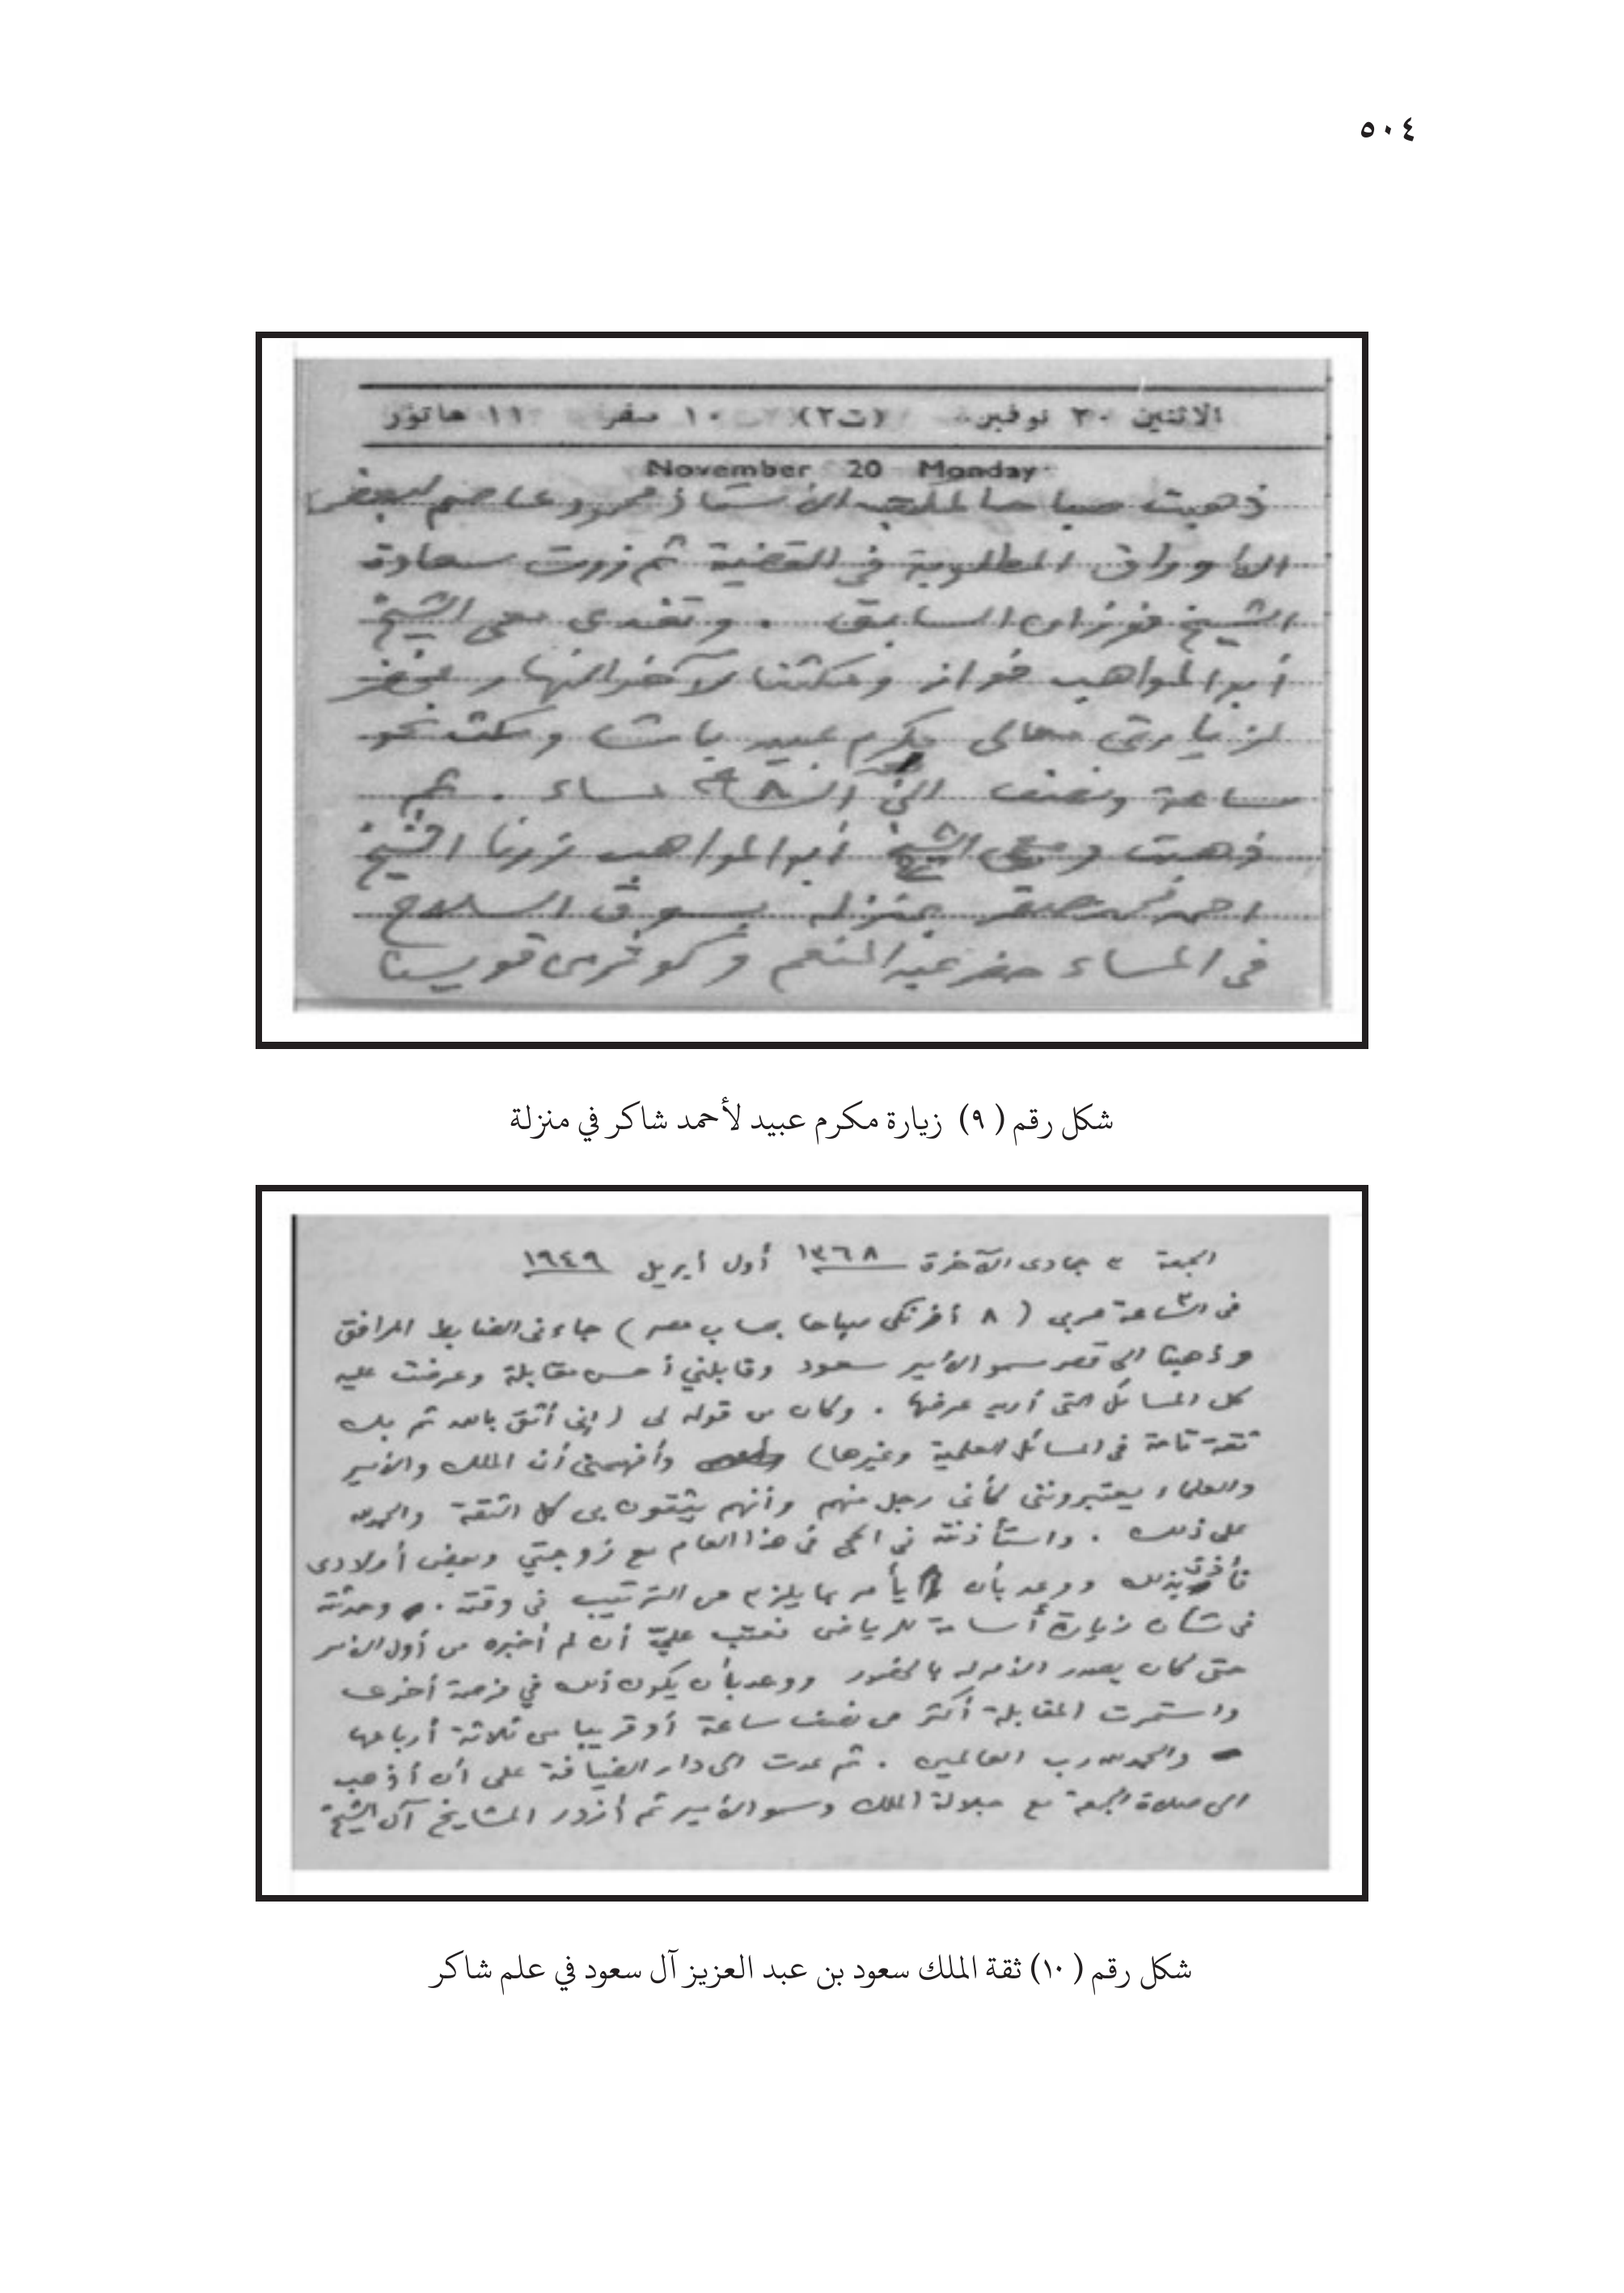 ٥٠٤
الاثنين ٢٠ نوفمبر (ت٢) ١٠ صفر ١١ هاتور
November 20 Monday
ذهبت صباحا لمكتب الأستاذ محمود عاصم لبعض
الأوراق المطلوبة في القضية ثم زرت سعادة
الشيخ فوزان السابق . وتغدى معي الشيخ
أبو المواهب فواز ومكثنا لآخر النهار فحضر
لزيارتي معالي مكرم عبيد باشا ومكث نحو
ساعة ونصف الى ٨ مساء . ثم
ذهبت ومعي الشيخ أبو المواهب زرنا الشيخ
احمد محمد صقر بمنزله بسوق السلاح
في المساء حضر عبد المنعم وكوثر من قويسنا
شكل رقم ( ٩ ) زيارة مكرم عبيد لأحمد شاكر في منزلة
الجمعة ٣ جمادى الآخرة ١٣٦٨ أول أبريل ١٩٤٩
في الساعة ٢ عربي ( ٨ أفرنكي صباحا بحساب مصر ) جاءني الضابط المرافق
وذهبنا الى قصر سمو الأمير سعود وقابلني أحسن مقابلة وعرضت عليه
كل المسائل التي أريد عرضها . وكان من قوله لي ( إني أثق بالله ثم بك
ثقة تامة في المسائل العلمية وغيرها ) وأفهمني أن الملك والأمير
والعلماء يعتبرونني كأني رجل منهم وأنهم يثقون بي كل الثقة والحمد لله
على ذلك . واستأذنته في الحج في هذا العام مع زوجتي وبعض أولادي
فأذن بذلك ووعد بأن يأمر بما يلزم من الترتيب في وقته . وحدثته
في شأن زيارة أسامة للرياض فعتب عليّ أن لم أخبره من أول الأمر
حتى كان يصدر الأمر له بالحضور ووعد بأن يكون ذلك في فرصة أخرى
واستمرت المقابلة أكثر من نصف ساعة أو قريبا من ثلاثة أرباعها
والحمد لله رب العالمين . ثم عدت الى دار الضيافة على أن أذهب
الى صلاة الجمعة مع جلالة الملك وسمو الأمير ثم أزور المشايخ آل الشيخ
شكل رقم ( ١٠ ) ثقة الملك سعود بن عبد العزيز آل سعود في علم شاكر